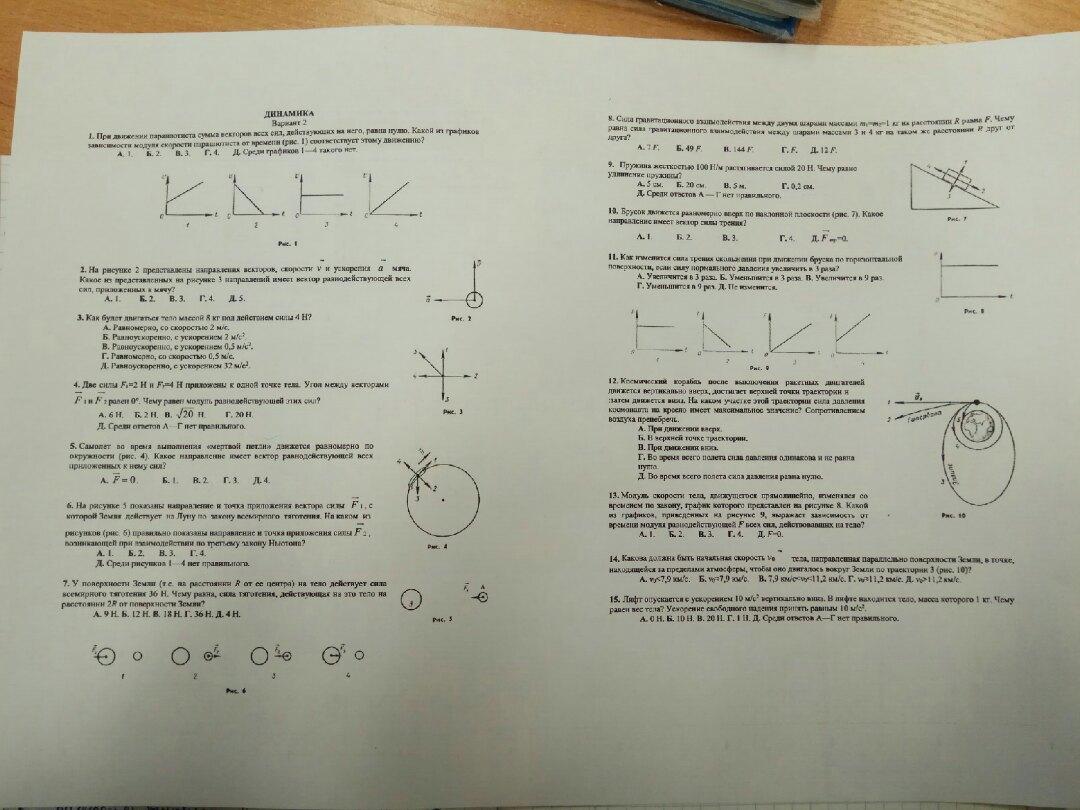 ДИНАМИКА
Вариант 2
1. При движении парашютиста сумма векторов всех сил, действующих на него, равна нулю. Какой из графиков
зависимости модуля скорости парашютиста от времени (рис. 1) соответствует этому движению?
А. 1. Б. 2. В. 3. Г. 4. Д. Среди графиков 1—4 такого нет.
υ υ υ υ
0 t 0 t 0 t 0 t
1 2 3 4
Рис. 1
2. На рисунке 2 представлены направления векторов, скорости v и ускорения a мяча.
Какое из представленных на рисунке 3 направлений имеет вектор равнодействующей всех
сил, приложенных к мячу?
А. 1. Б. 2. В. 3. Г. 4. Д. 5.
Рис. 2
3. Как будет двигаться тело массой 8 кг под действием силы 4 Н?
А. Равномерно, со скоростью 2 м/с.
Б. Равноускоренно, с ускорением 2 м/с².
В. Равноускоренно, с ускорением 0,5 м/с².
Г. Равномерно, со скоростью 0,5 м/с.
Д. Равноускоренно, с ускорением 32 м/с².
Рис. 3
4. Две силы F₁=2 Н и F₂=4 Н приложены к одной точке тела. Угол между векторами
F 1 и F 2 равен 0°. Чему равен модуль равнодействующей этих сил?
А. 6 Н. Б. 2 Н. В. √20 Н. Г. 20 Н.
Д. Среди ответов А—Г нет правильного.
5. Самолет во время выполнения «мертвой петли» движется равномерно по
окружности (рис. 4). Какое направление имеет вектор равнодействующей всех
приложенных к нему сил?
А. F = 0. Б. 1. В. 2. Г. 3. Д. 4.
Рис. 4
6. На рисунке 5 показаны направление и точка приложения вектора силы F 1, с
которой Земля действует на Луну по закону всемирного тяготения. На каком из
рисунков (рис. 6) правильно показаны направление и точка приложения силы F 2,
возникающей при взаимодействии по третьему закону Ньютона?
А. 1. Б. 2. В. 3. Г. 4.
Д. Среди рисунков 1—4 нет правильного.
7. У поверхности Земли (т.е. на расстоянии R от ее центра) на тело действует сила
всемирного тяготения 36 Н. Чему равна, сила тяготения, действующая на это тело на
расстоянии 2R от поверхности Земли?
А. 9 Н. Б. 12 Н. В. 18 Н. Г. 36 Н. Д. 4 Н.
Рис. 5
1 2 3 4
Рис. 6
8. Сила гравитационного взаимодействия между двумя шарами массами m₁=m₂=1 кг на расстоянии R равна F. Чему
равна сила гравитационного взаимодействия между шарами массами 3 и 4 кг на таком же расстоянии R друг от
друга?
А. 7 F. Б. 49 F. В. 144 F. Г. F. Д. 12 F.
9. Пружина жесткостью 100 Н/м растягивается силой 20 Н. Чему равно
удлинение пружины?
А. 5 см. Б. 20 см. В. 5 м. Г. 0,2 см.
Д. Среди ответов А — Г нет правильного.
Рис. 7
10. Брусок движется равномерно вверх по наклонной плоскости (рис. 7). Какое
направление имеет вектор силы трения?
А. 1. Б. 2. В. 3. Г. 4. Д. F тр=0.
11. Как изменится сила трения скольжения при движении бруска по горизонтальной
поверхности, если силу нормального давления увеличить в 3 раза?
А. Увеличится в 3 раза. Б. Уменьшится в 3 раза. В. Увеличится в 9 раз.
Г. Уменьшится в 9 раз. Д. Не изменится.
Рис. 8
1 2 3 4
Рис. 9
12. Космический корабль после выключения ракетных двигателей
движется вертикально вверх, достигает верхней точки траектории и
затем движется вниз. На каком участке этой траектории сила давления
космонавта на кресло имеет максимальное значение? Сопротивлением
воздуха пренебречь.
А. При движении вверх.
Б. В верхней точке траектории.
В. При движении вниз.
Г. Во время всего полета сила давления одинакова и не равна
нулю.
Д. Во время всего полета сила давления равна нулю.
Гипербола
Эллипс
Рис. 10
13. Модуль скорости тела, движущегося прямолинейно, изменялся со
временем по закону, график которого представлен на рисунке 8. Какой
из графиков, приведенных на рисунке 9, выражает зависимость от
времени модуля равнодействующей F всех сил, действовавших на тело?
А. 1. Б. 2. В. 3. Г. 4. Д. F=0.
14. Какова должна быть начальная скорость v₀ тела, направленная параллельно поверхности Земли, в точке,
находящейся за пределами атмосферы, чтобы оно двигалось вокруг Земли по траектории 3 (рис. 10)?
А. v₀<7,9 км/с. Б. v₀=7,9 км/с. В. 7,9 км/с<v₀<11,2 км/с. Г. v₀=11,2 км/с. Д. v₀>11,2 км/с.
15. Лифт опускается с ускорением 10 м/с² вертикально вниз. В лифте находится тело, масса которого 1 кг. Чему
равен вес тела? Ускорение свободного падения принять равным 10 м/с².
А. 0 Н. Б. 10 Н. В. 20 Н. Г. 1 Н. Д. Среди ответов А—Г нет правильного.